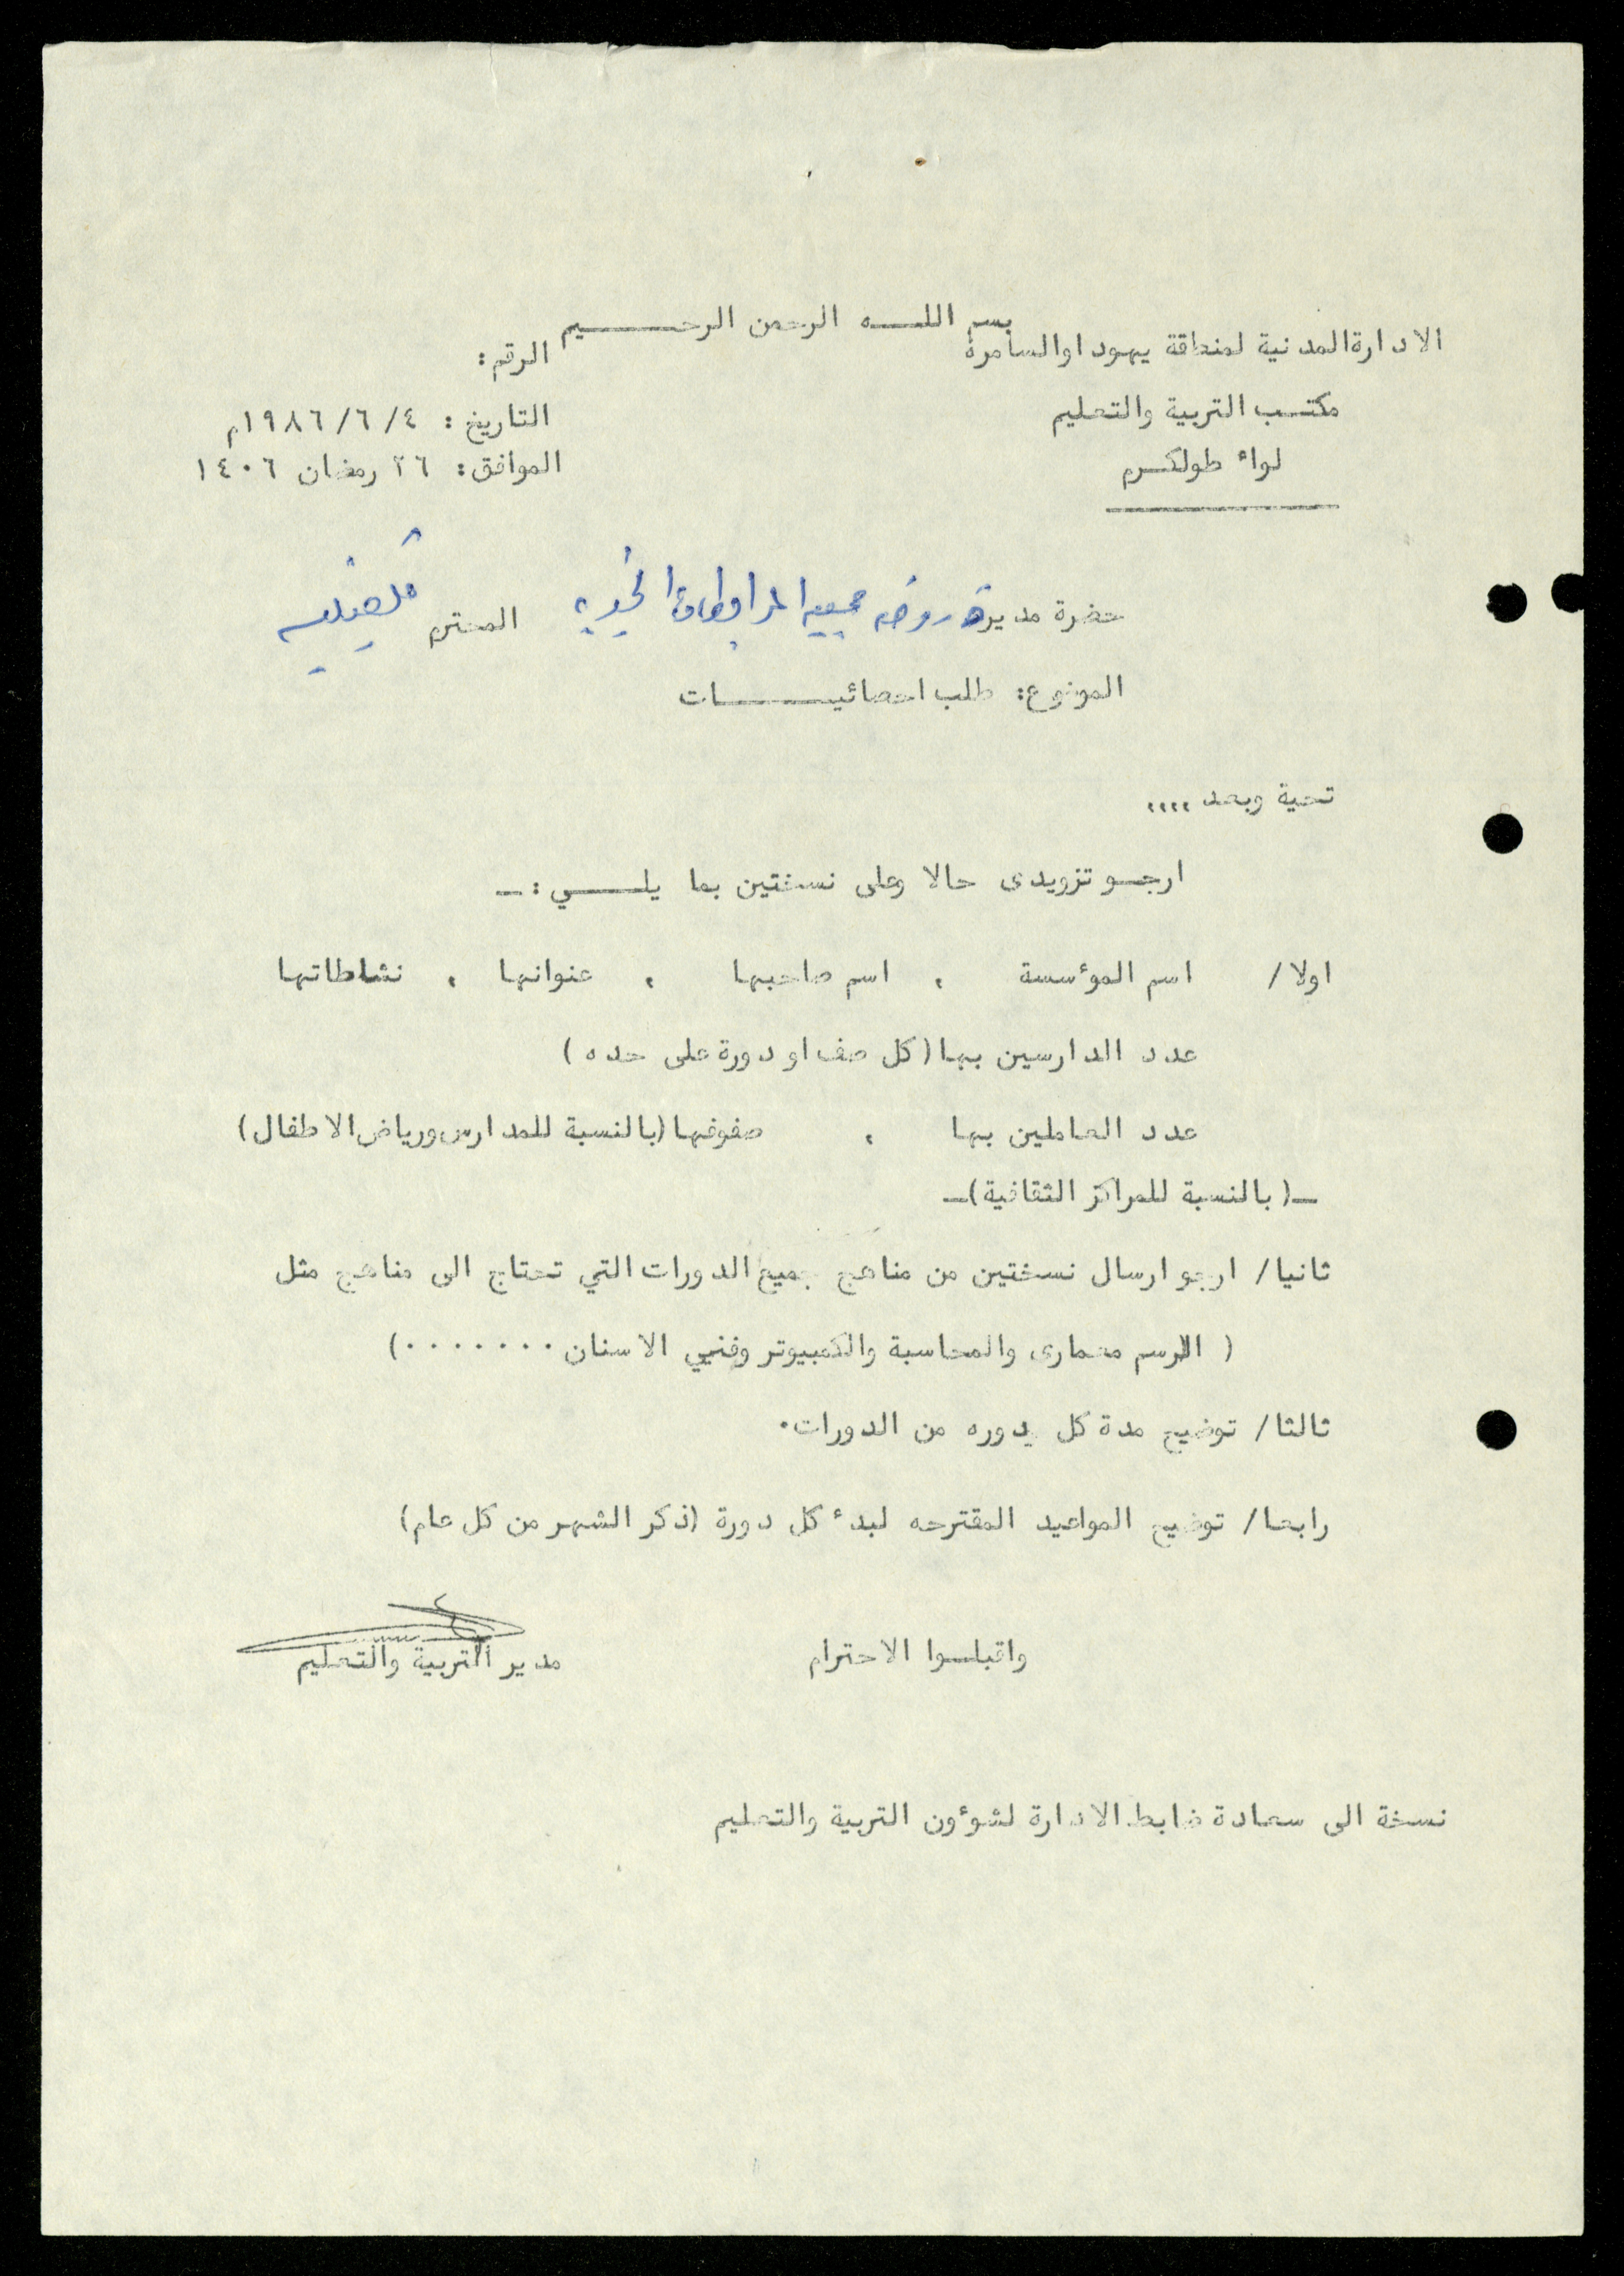 بسم اللـــه الرحمن الرحـــــيم
الادارة المدنية لمنطقة يهودا والسامرة
الرقم:
مكتـب التربية والتعليم
التاريخ: ٤/ ٦/ ١٩٨٦م
لواء طولكـرم
الموافق: ٢٦ رمضان ١٤٠٦
حضرة مديرة روضة جمعية المرابطات الخيرية المحترم قلقيلية
الموضوع: طلب احصائيـــــــات
تحية وبعد ،،،،
ارجـو تزويدى حالا وعلى نسختين بما يلــــي :ـ
اولا/ اسم المؤسسة ، اسم صاحبها ، عنوانها ، نشاطاتها
عدد الدارسين بها (كل صف او دورة على حده )
عدد العاملين بها ، صفوفها (بالنسبة للمدارس ورياض الاطفال)
ـ( بالنسبة للمراكز الثقافية)ـ
ثانيا/ ارجو ارسال نسختين من مناهج جميع الدورات التي تحتاج الى مناهج مثل
( الرسم معمارى والمحاسبة والكمبيوتر وفني الاسنان ٠٠٠٠٠٠٠)
ثالثا/ توضيح مدة كل دوره من الدورات٠
رابعا/ توضيح المواعيد المقترحه لبدء كل دورة (ذكر الشهر من كل عام)
واقبلـوا الاحترام
مدير التربية والتعليم
نسخة الى سعادة ضابط الادارة لشؤون التربية والتعليم